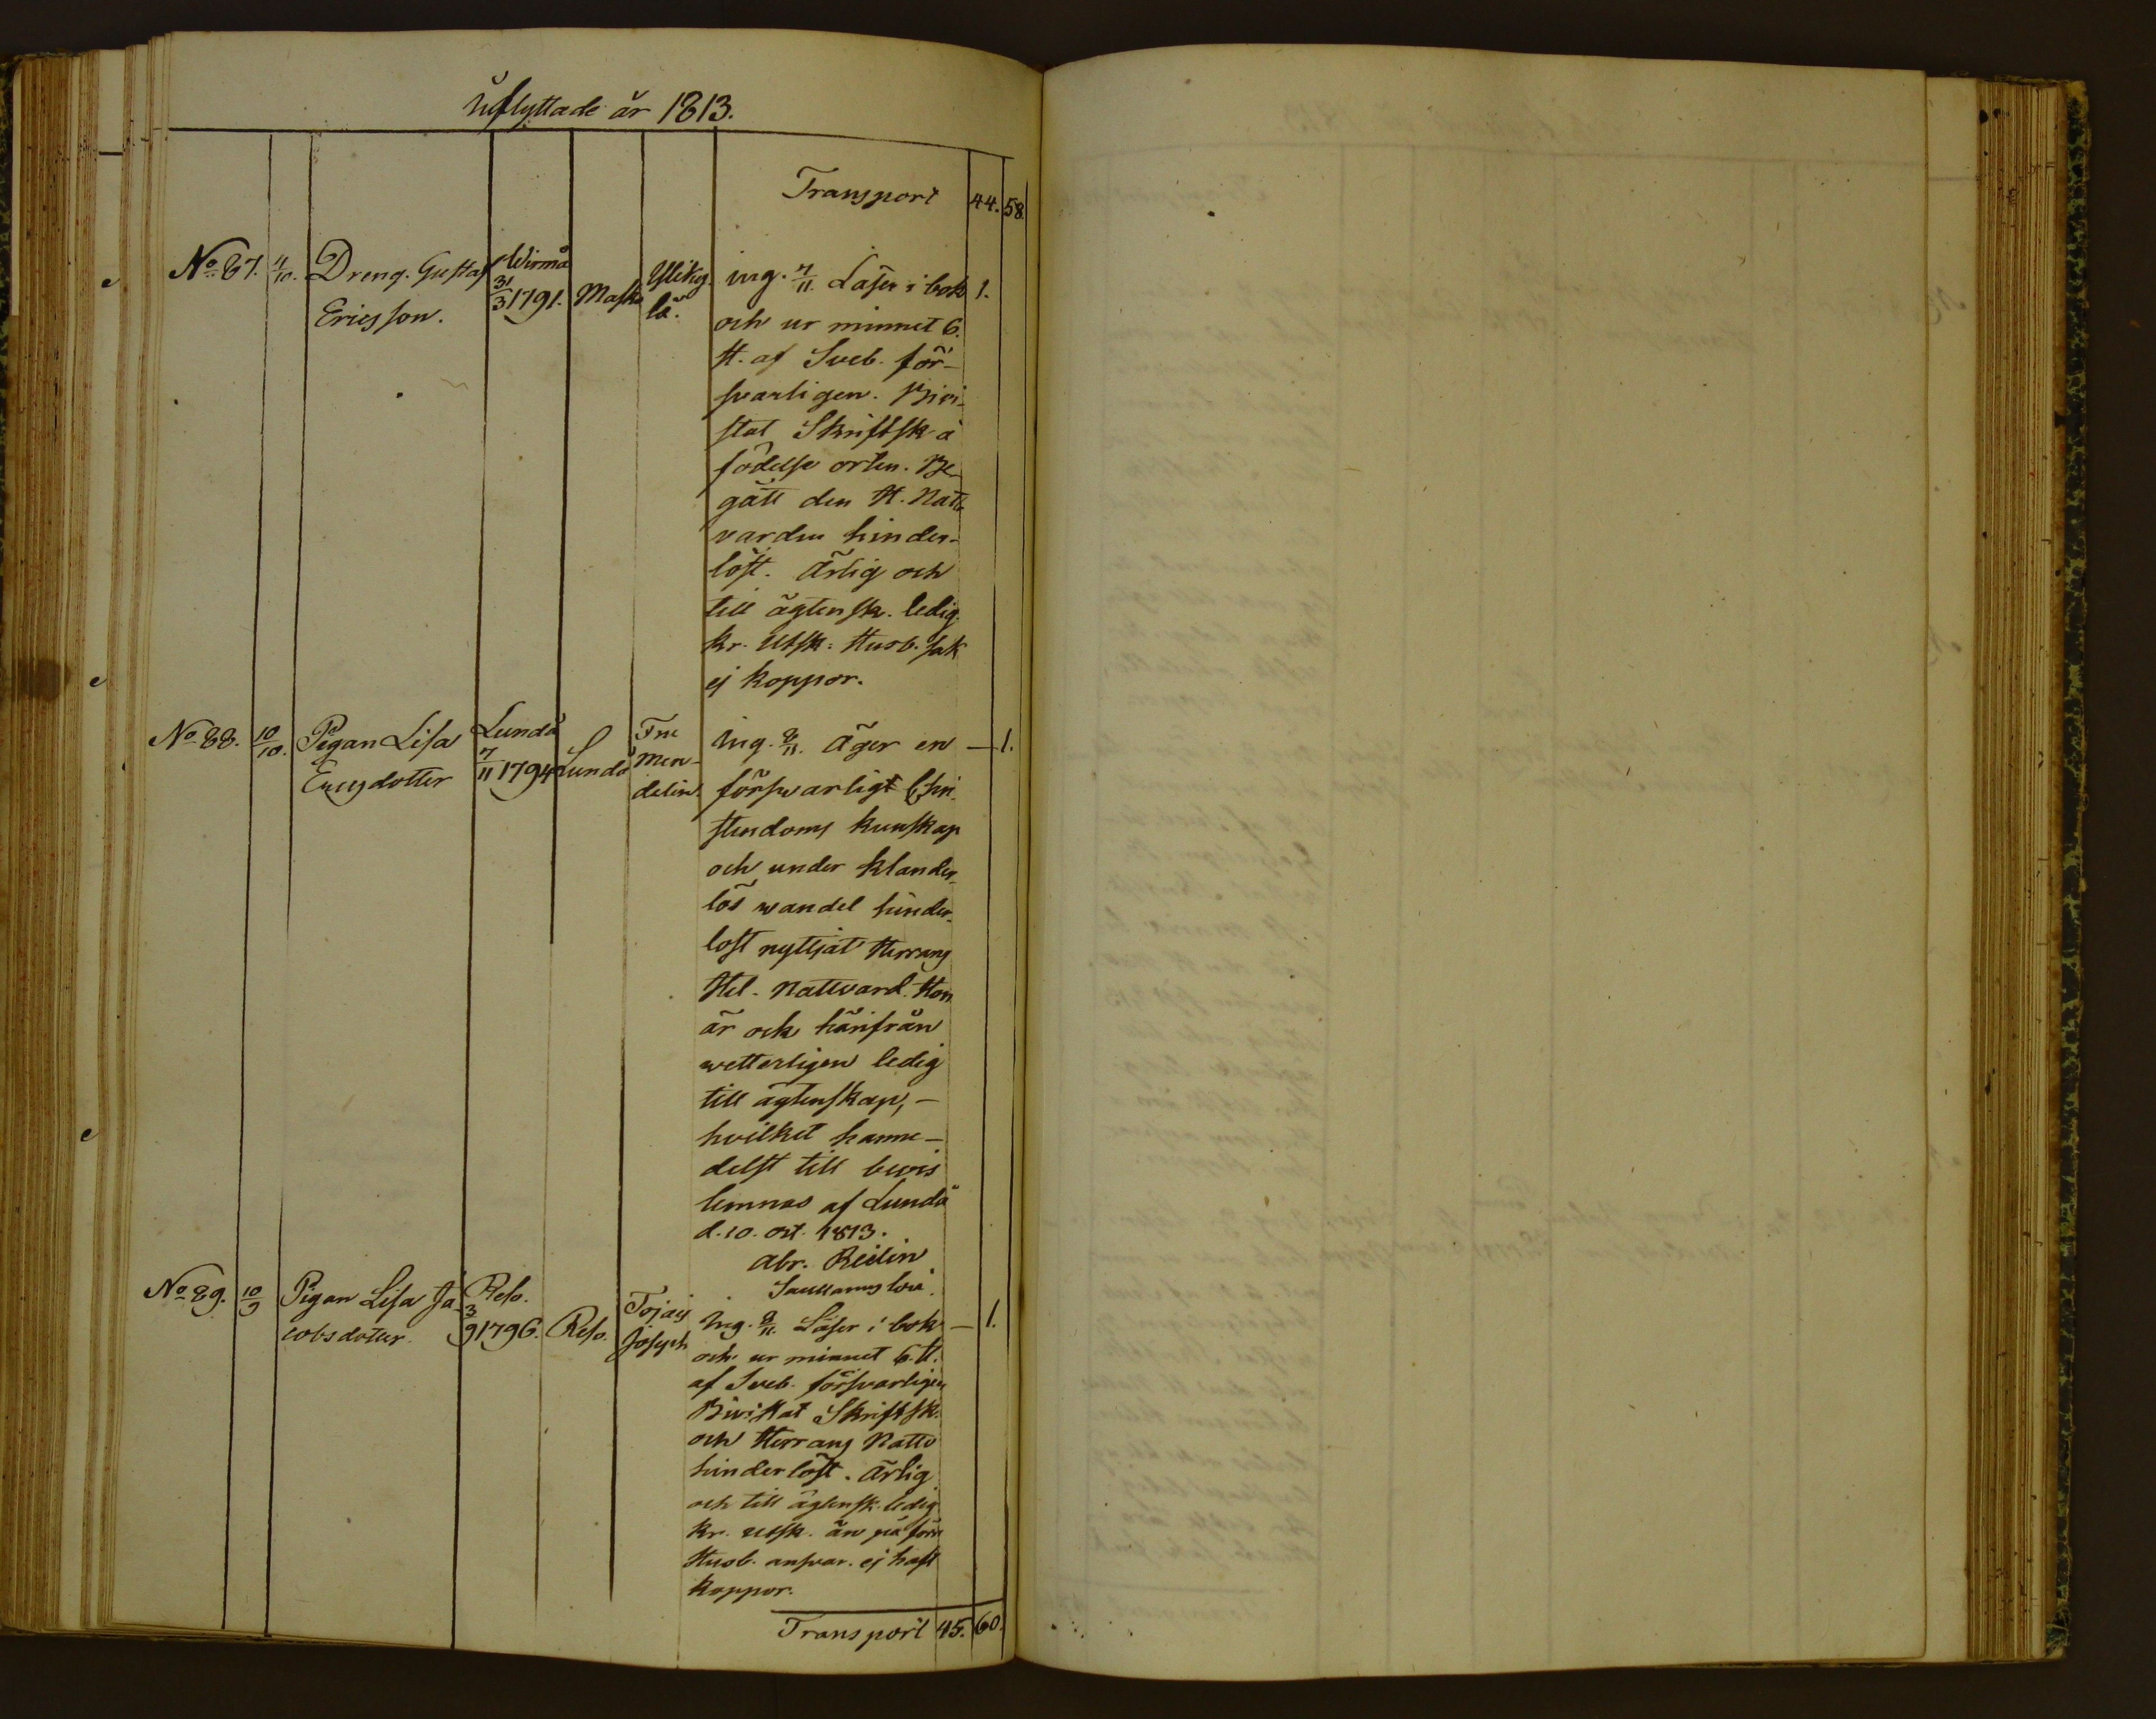 Uflyttade år 1813.
Transport 44. 58.
No. 87. 4/10. Dreng. Gustaf Ericsson. Wirmå 31/3 1791. Masku
ing. 7/11. Läser i bok 1.
och ur minnet 6.
H. af Sveb. för-
svarligen. Bivi-
stat Skriftsk. å
födelse orten. Be-
gått den H. Natt-
varden hinder-
löst. Ärlig och
till ägtensk. ledig.
kr. utsk. Husb. sak
ej koppor.
No. 88. 10/10. Pigan Lisa Ericsdotter Lundå 7/11 1794 Lundå
ing. 8/11. Äger en — 1.
försvarligt Chri-
stendoms kunskap
och under klander-
lös wandel hinder-
löst nyttjat Herrans
Hel. Nattvard. Hon
är och härifrån
wetterligen ledig
till ägtenskap, —
hvilket hanne-
delst till bevis
lemnas af Lundå
d. 10. oct. 1813.
Abr. Reilin
No. 89. 10/9 Pigan Lisa Jacobsdotter Reso. 3/9 1796. Reso. Tojais Joseph
ing. 8/11. Läser i bok — 1.
och ur minnet 6. H.
af Sveb. försvarligen
Bivistat Skriftsk.
och Herrans Nattv.
hinderlöst. Ärlig
och till ägtensk. ledig
kr. utsk. än på förra
Husb. ansvar. ej haft
koppor.
Transport 45. 60.